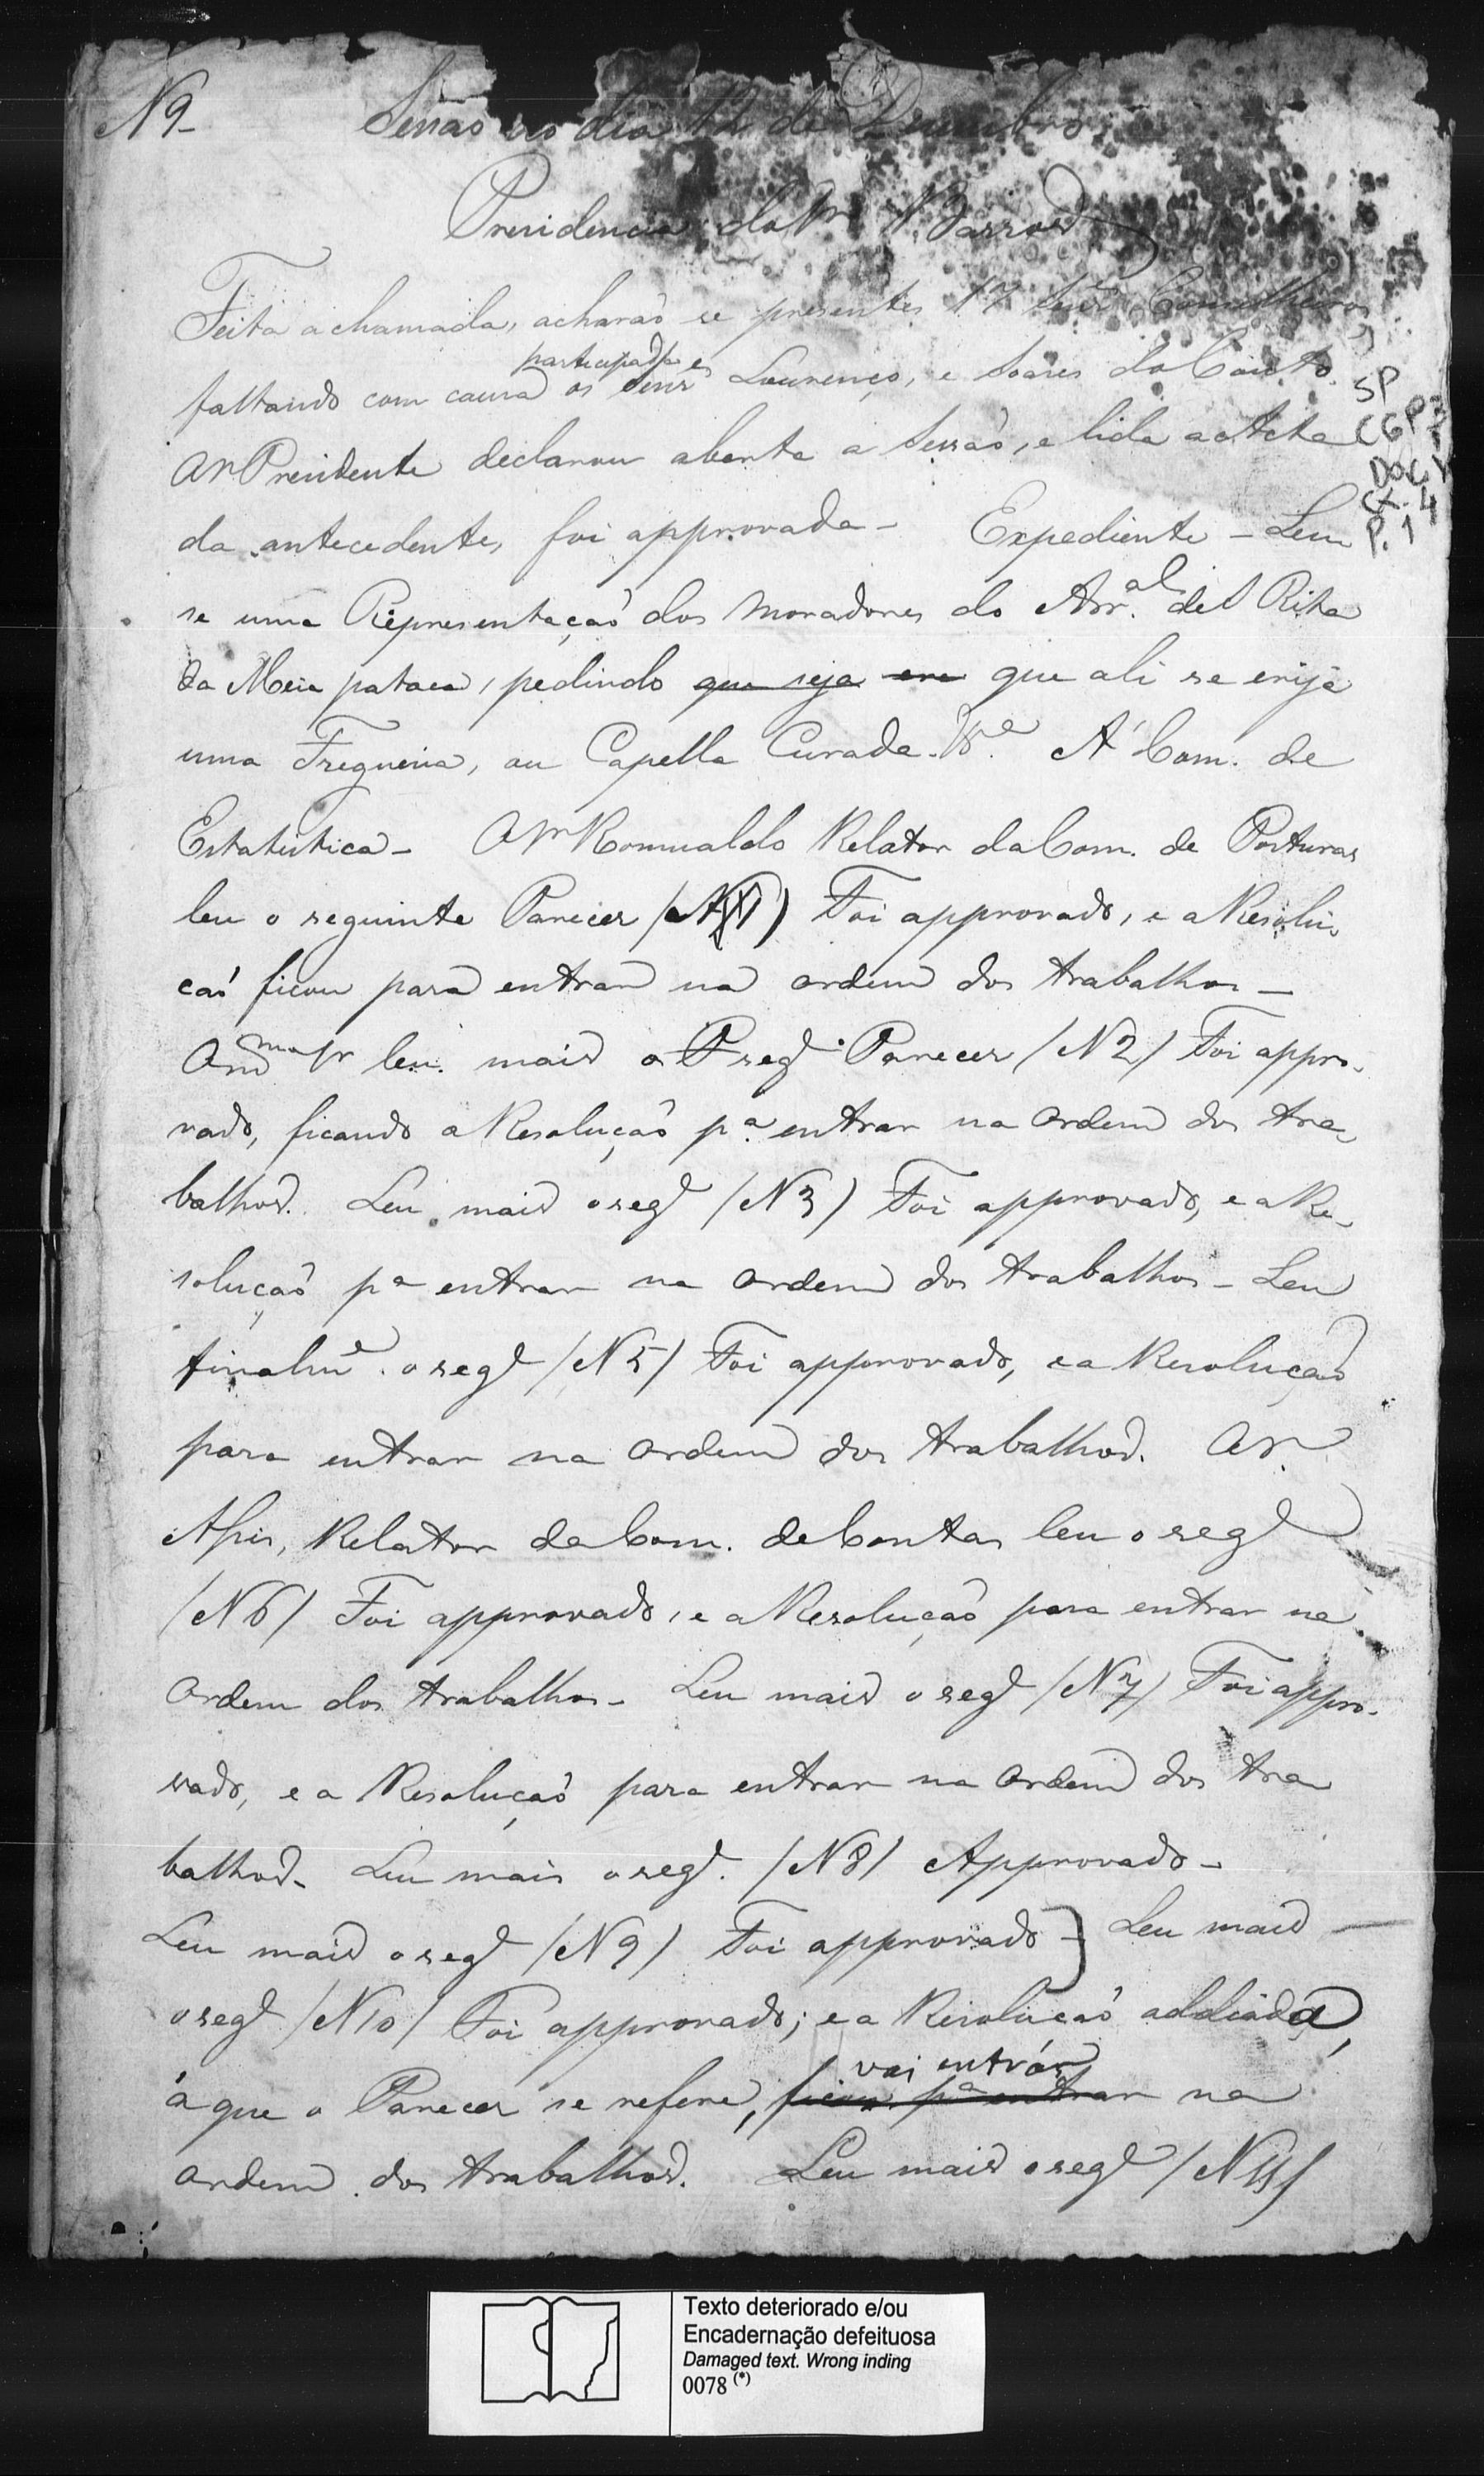 N 9-
Sessão no dia 12 de Dezembro
Presidencia do Sr Barros
Feita a chamada, acharão se presentes 17 Senrs Conselheiros,
participada
faltando com causa os Senrs Lourenço, e Soares do Couto.
O Sr Presidente declarou aberta a Sessão, e lida a Acta
da antecedente, foi approvada - Expediente - Leu
se uma Representação dos Moradores do Arr.al de S Rita
da Meia pataca, pedindo que seja ere que ali se erija
uma Freguesia, ou Capella Curada. A' Com. de
Estatistica - O Sr Romualdo Relator da Com. de Posturas
leu o seguinte Parecer (N 1) Foi approvado, e a Resolu-
ção ficou para entrar na ordem dos trabalhos -
O m.mo Sr leu mais o P seg.e Parecer /N 2/ Foi appro-
vado, ficando a Resolução p.a entrar na ordem dos tra-
balhos. Leu mais o seg.e /N 3/ Foi approvado, e a Re-
solução p.a entrar na ordem dos trabalhos - Leu
finalm.e o seg.e /N 5/ Foi approvado, e a Resolução
para entrar na ordem dos trabalhos. O Sr.
Assis, Relator da Com. de Contas leu o seg.e
/N 6/ Foi approvado, e a Resolução para entrar na
ordem dos trabalhos - Leu mais o seg.e /N 7/ Foi appro-
vado, e a Resolução para entrar na ordem dos tra
balhos - Leu mais o seg.e /N 8/ Approvado -
Leu mais o seg.e /N 9/ Foi approvado - Leu mais -
o seg.e /N 10/ Foi approvado; e a Resolução addiada,
vai entrár
à que o Parecer se refere, ficou p.a entrar na
ordem dos trabalhos. Leu mais o seg.e /N 11/
SP
CGP3
DOC Y
CX. 4
P. 1
Texto deteriorado e/ou
Encadernação defeituosa
Damaged text. Wrong inding
0078 (*)